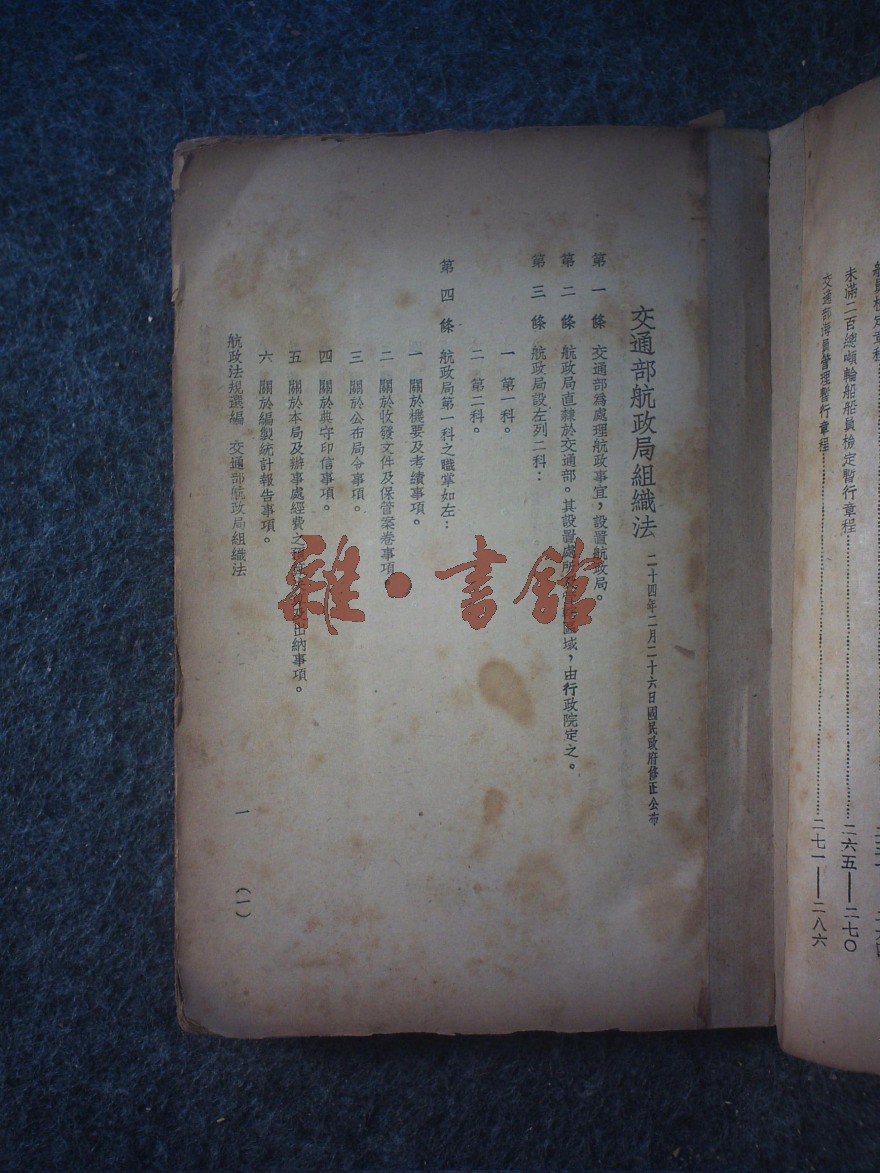 船員檢定章程
未滿二百總噸輪船船員檢定暫行章程……二六五——二七〇
交通部海員管理暫行章程……二七一——二八六
交通部航政局組織法 二十四年二月二十六日國民政府修正公布
第一條 交通部爲處理航政事宜，設置航政局。
第二條 航政局直隸於交通部。其設置處所及區域，由行政院定之。
第三條 航政局設左列二科：
一 第一科。
二 第二科。
第四條 航政局第一科之職掌如左：
一 關於機要及考績事項。
二 關於收發文件及保管案卷事項。
三 關於公布局令事項。
四 關於典守印信事項。
五 關於本局及辦事處經費之出納事項。
六 關於編製統計報告事項。
航政法規選編 交通部航政局組織法 一 （一）
雜·書館